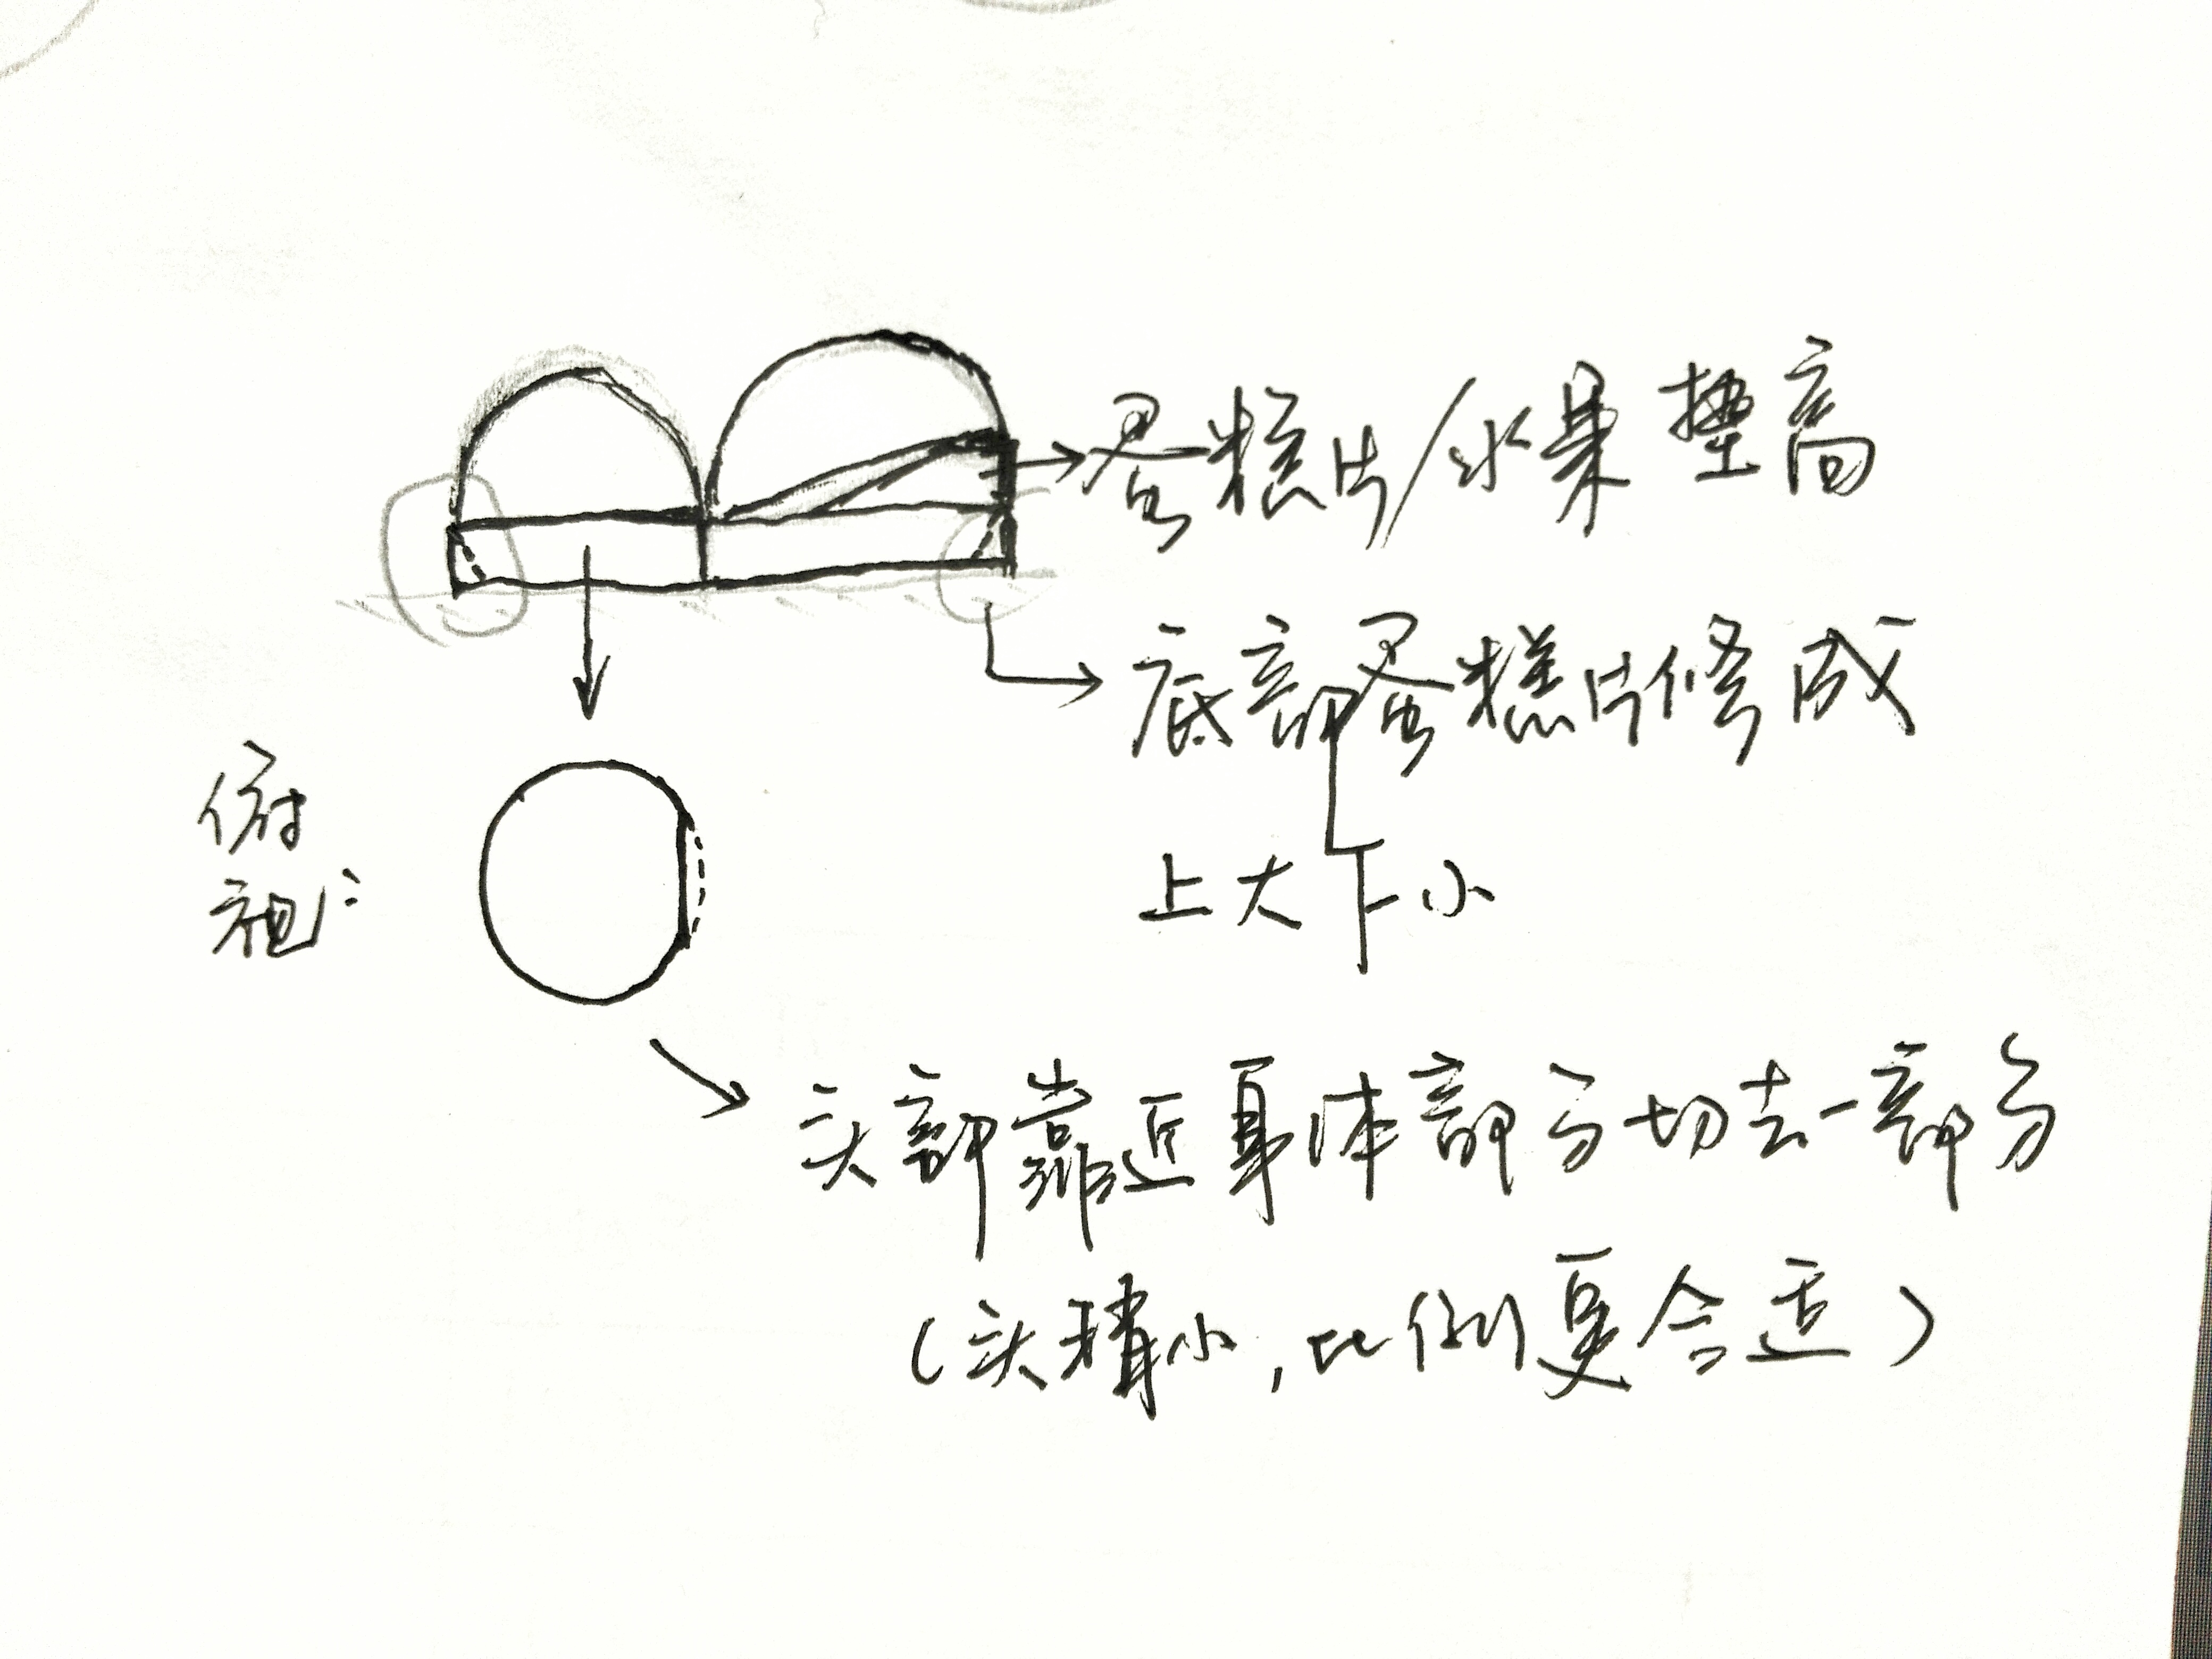 蛋糕片/水果垫高
底部蛋糕片修成
上大下小
俯
视:
头部靠近身体部分切去一部分
(头稍小,比例更合适)